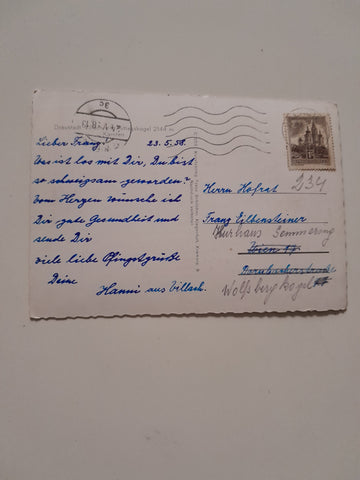 2144 m
Kärnten
Lieber Franz!
23.5.58.
Was ist los mit Dir, Du bist
so schweigsam geworden?
Vom Herzen wünsche ich
Dir gute Gesundheit und
sende Dir
viele liebe Pfingstgrüße
Deine
Hanni aus Villach.
Herrn Hofrat
234
Franz Silbensteiner
Kurhaus Semmering
Wien
Wolfsbergkogel